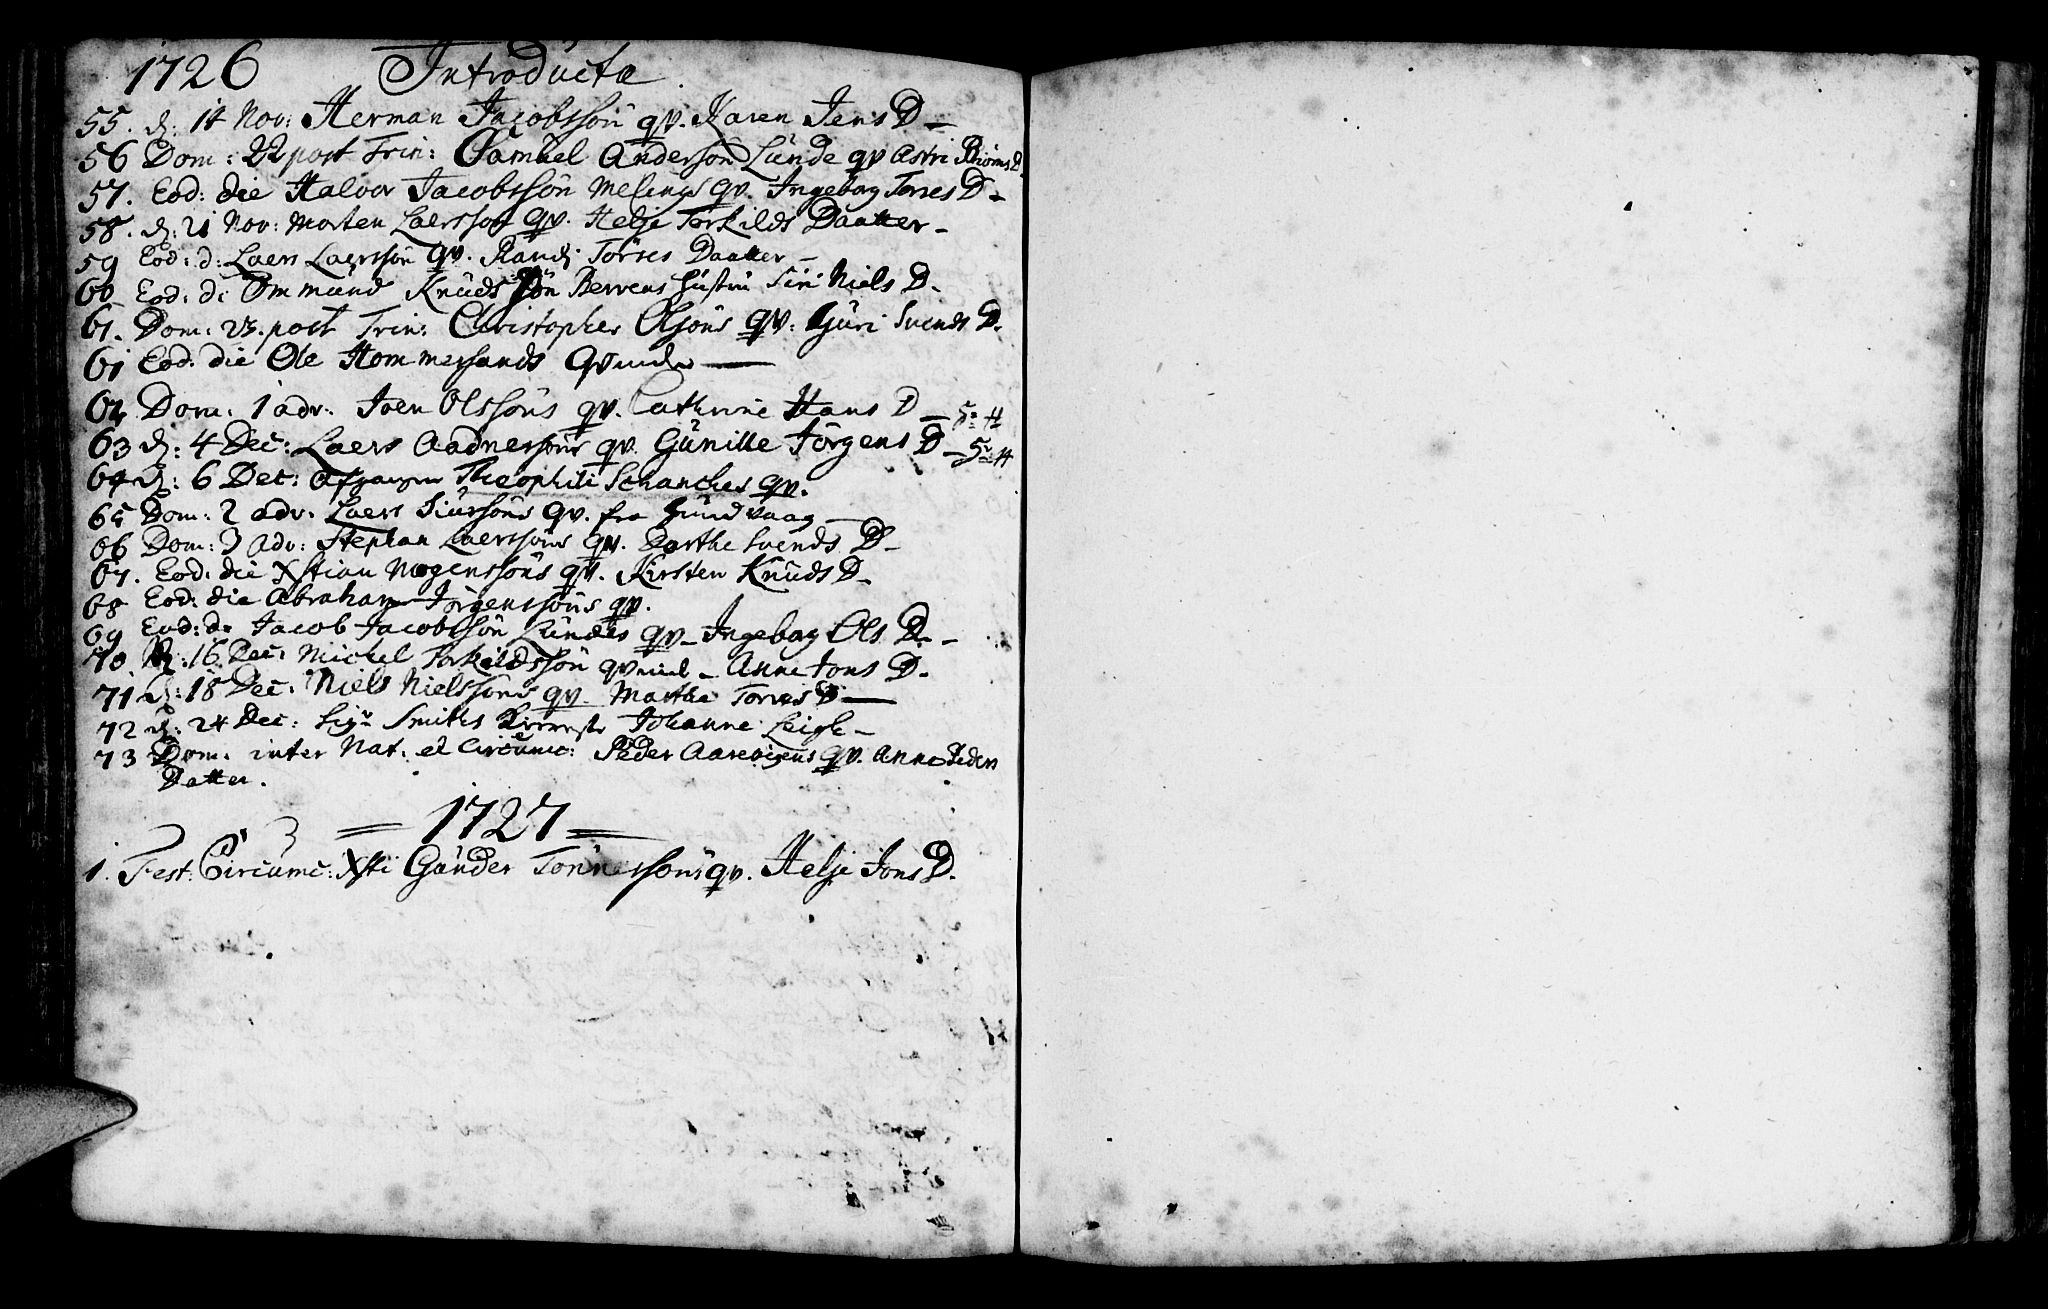 1726 Introductæ
55. d: 14 Nov: Herman Jacobssön qv. Karen Jens D
56 Dom: 22 post Trin: Samuel Anderson Lunde qv Astri Biörns D
57. Eod: die Halvor Jacobssön Melings qv. Ingeborg Torres D
58. d: 21 Nov: Morten Laerssøn qv. Helje Torkilds Daatter
59 Eod: d: Laers Laerssön qv. Randi Törres Daatter
60 Eod: d: Ommund Knudssön Berrens Hustru Siri Niels D.
61. Dom: 23. post Trin: Christopher Olsöns qv: Guri Svends D.
61 Eod: die Ole Hommersands Qvinde
62 Dom: 1 adv: Joen Olssöns qv. Cathrine Hans D 5 #
63 d: 4 Dec: Laers Aadnessöns qv. Gunille Jörgens D 5 #
64 d: 6 Dec: Afgangne Theophili Schanches qv.
65 Dom: 2 adv. Laers Siurssöns qv. fra Hundvaag
66 Dom: 3 Adv: Stephan Laerssöns qv. Dorthe Svends D
67. Eod: die Xstian Mogenssöns qv. Kirsten Knuds D
68 Eod: die Abraham Jörgenssöns qv.
69 Eod: d: Jacob Jacobssön Lundes qv Ingebog Ols D.
70 d: 16 Dec: Michel Torkildssön qvind Anne Jons D.
71 d: 18 Dec: Niels Nielssöns qv. Marthe Torres D
72 d: 24 Dec: Sigr Smiths Kierreste Johanne Leigh
73 Dom: inter Nat: et Circumc: Peder Aarevigens qv. Anne Peders
Datter.
1727
1. Fest: Circumc: Xsti Gunder Tönnessöns qv. Helje Jons D.